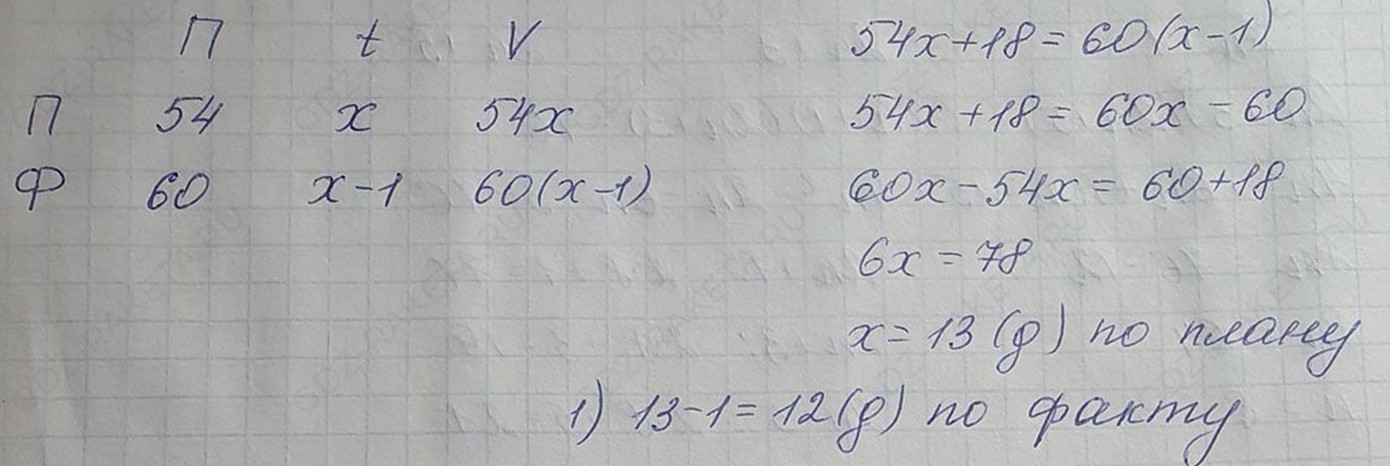 П t V
П 54 x 54x
Ф 60 x-1 60(x-1)
54x+18=60(x-1)
54x+18=60x-60
60x-54x=60+18
6x=78
x=13(д) по плану
1) 13-1=12(д) по факту